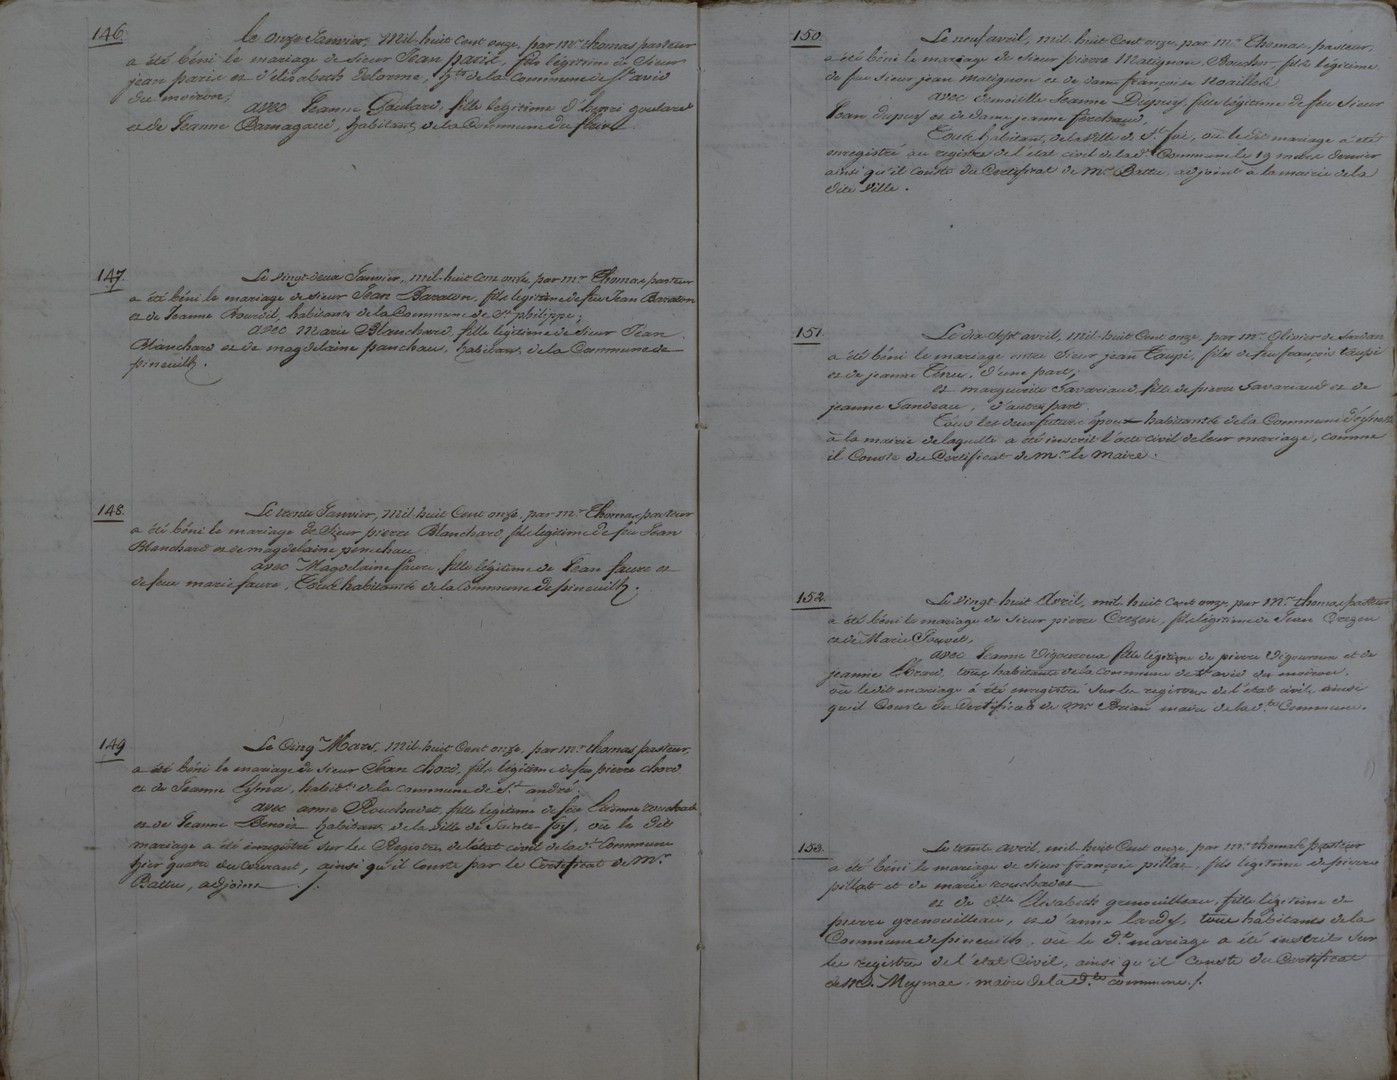 146.
Le onze Janvier, Mil-huit Cent onze, par mr thomas pasteur
a été béni le mariage de sieur Jean paris, fils légitime de Sieur
jean paris et d'élisabeth delorme, hts de la Commune de St avid
du moiron,
avec Jeanne Goulard, fille légitime d'henri goulard
et de Jeanne Barnagaud, habitans de la Commune du fleix
147.
Le vingt-deux Janvier, mil-huit cent onze, par mr Thomas pasteur
a été béni le mariage de sieur Jean Baraton, fils légitime de feu Jean Baraton
et de Jeanne habitans de la Commune de St philippe;
avec Marie Blanchard, fille légitime de sieur Jean
Blanchard et de magdelaine panchau, habitans, de la Commune de
pineuilh.
148.
Le trente Janvier, mil huit Cent onze, par mr Thomas pasteur
a été béni le mariage de Sieur pierre Blanchard fils légitime de feu Jean
Blanchard et de magdelaine penchau
avec Magdelaine faure, fille légitime de Jean faure et
de feue marie faure, Tous habitants de la commune de pineuilh.
149
Le Cinq Mars, Mil-huit Cent onze, par mr thomas pasteur,
a été béni le mariage de sieur Jean chord, fils légitime de feu pierre chord
et de Jeanne habits de la commune de St andré;
avec anne Rouchadet, fille légitime de feu Etienne
et de Jeanne Benoit habitans, de la ville de Sainte-foy, où le dit
mariage a été énregistré sur les Registres de l'état civil de la de Commune
hier quatre du courant, ainsi qu'il conste par le Certificat de Mr
Battu, adjoint ./.
150.
Le neuf avril, mil-huit Cent onze, par mr Thomas, pasteur,
a été béni le mariage de sieur pierre Matignon, Boucher, fils légitime
de feu sieur jean Matignon et de dame françoise Noailles
avec demoiselle Jeanne Dupuy, fille légitime de feu sieur
Jean dupuy et de dame jeanne
Tous habitans, de la Ville de St foi, où le dit mariage a été
enregistré au registre de l'état civil de la de Commune le 19 mars dernier
ainsi qu'il Conste du Certificat de Mr Battu, adjoint à la mairie de la
dite Ville.
151.
Le dix Sept avril, mil-huit Cent onze, par mr Olivier de Sardan
a été béni le mariage entre sieur jean Taupi, fils de feu françois taupi
et de jeanne d'une part;
et marguerite Savariaud, fille de pierre Savariaud et de
jeanne d'autre part.
Tous les deux futurs époux habitants de la Commune d'eynesse
à la mairie de laquelle a été inscrit l'acte civil de leur mariage, comme
il Conste du Certificat de Mr le Maire.
152.
Le vingt-huit Avril, mil huit Cent onze, par mr thomas pasteur
a été béni le mariage de sieur pierre Crezen, fils légitime de Jean Crezen
et de Marie
avec Jeanne Vigouroux fille légitime de pierre Vigouroux et de
jeanne tous habitants de la commune de St avid du moiron,
où le dit mariage à été enregistré sur les registres de l'état civil, ainsi
qu'il Conste du Certificat de Mr Brian maire de la dte Commune.
153.
Le trente avril, mil huit Cent onze, par mr thomas pasteur
a été béni le mariage de sieur françois pillat, fils légitime de pierre
pillat et de marie rouchadet
et de dlle Elisabeth grenouilleau, fille légitime de
pierre grenouilleau, et d'anne lardy, tous habitants de la
Commune de pineuilh, où le dt mariage a été inscrit Sur
les registres de l'état Civil, ainsi qu'il conste du Certificat
de M. Meymac, maire de la dte commune./.